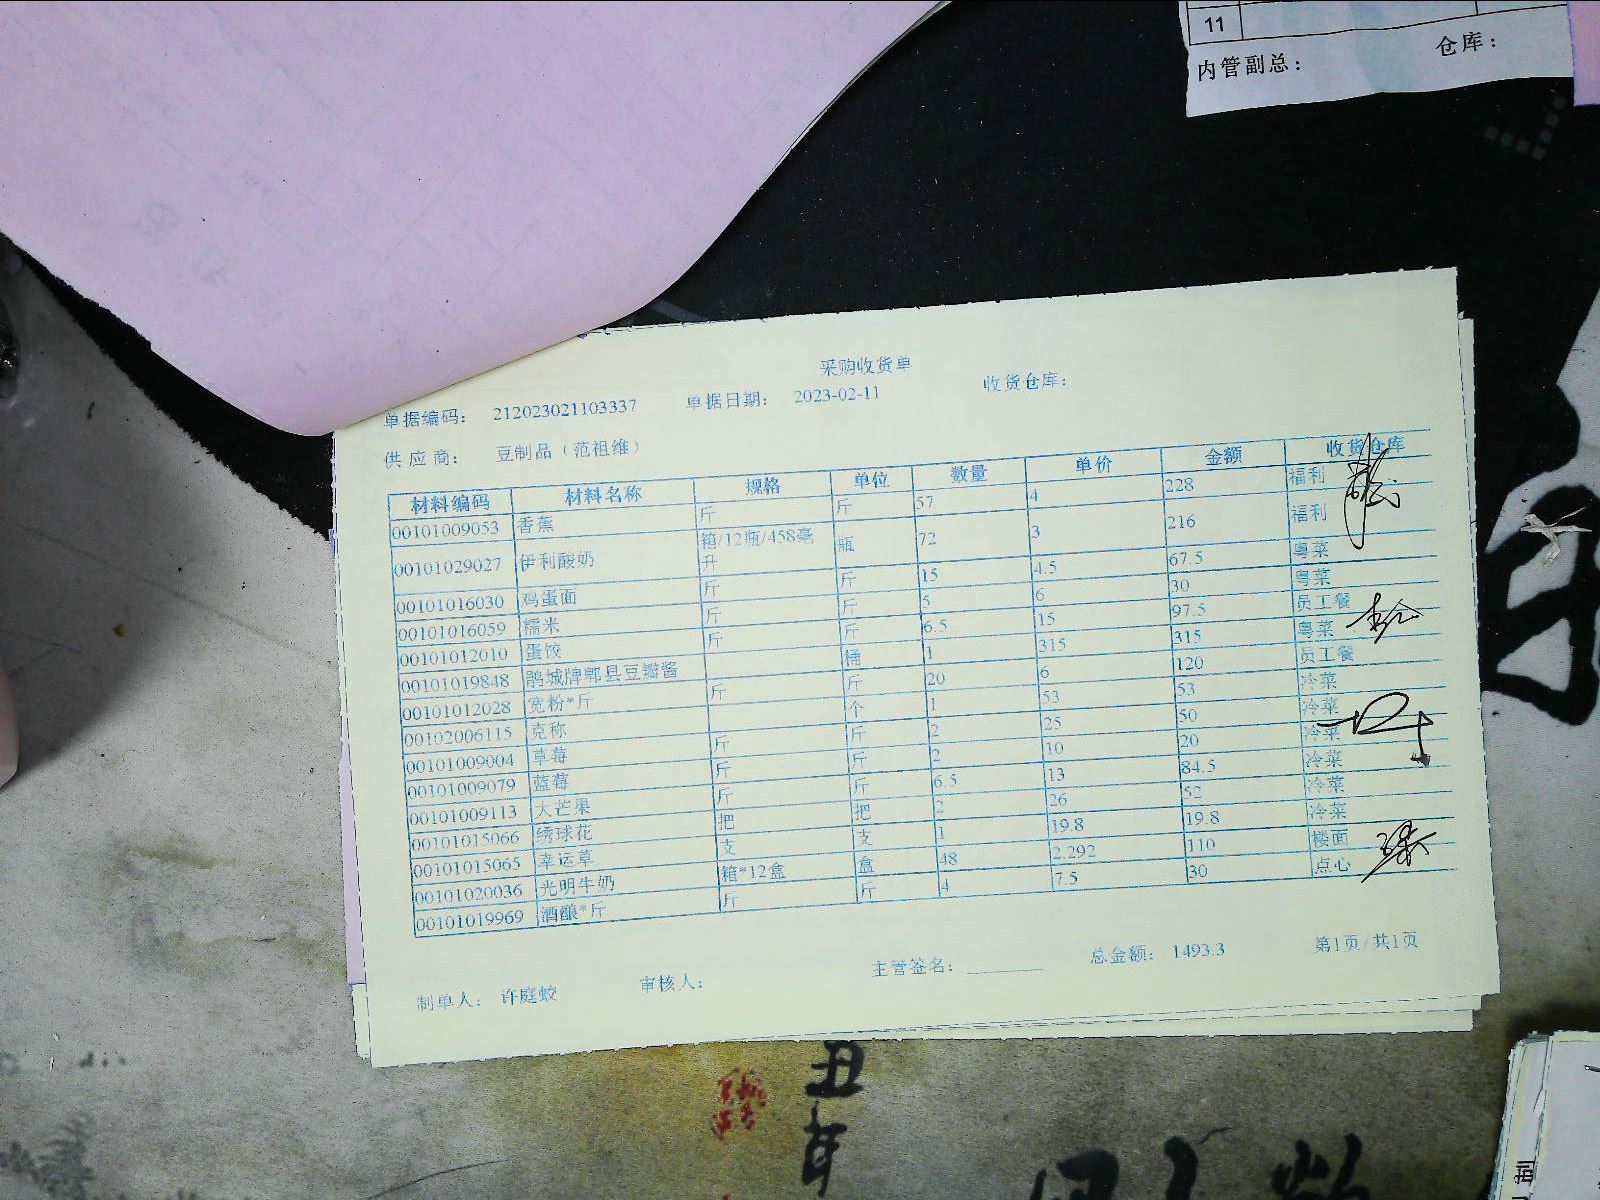 11
内管副总： 仓库：
采购收货单
单据编码： 212023021103337 单据日期： 2023-02-11 收货仓库：
供应商： 豆制品（范祖维）
材料编码 材料名称 规格 单位 数量 单价 金额 收货仓库
00101009053 香蕉 斤 斤 57 4 228 福利
00101029027 伊利酸奶 箱/12瓶/458毫升 瓶 72 3 216 福利
00101016030 鸡蛋面 斤 斤 15 4.5 67.5 粤菜
00101016059 糯米 斤 斤 5 6 30 粤菜
00101012010 蛋饺 斤 斤 6.5 15 97.5 员工餐
00101019848 鹃城牌郫县豆瓣酱 桶 1 315 315 粤菜
00101012028 宽粉*斤 斤 斤 20 6 120 员工餐
00102006115 克称 个 1 53 53 冷菜
00101009004 草莓 斤 斤 2 25 50 冷菜
00101009079 蓝莓 斤 斤 2 10 20 冷菜
00101009113 大芒果 斤 斤 6.5 13 84.5 冷菜
00101015066 绣球花 把 把 2 26 52 冷菜
00101015065 幸运草 支 支 1 19.8 19.8 冷菜
00101020036 光明牛奶 箱*12盒 盒 48 2.292 110 楼面
00101019969 酒酿*斤 斤 斤 4 7.5 30 点心
制单人： 许庭蛟 审核人： 主管签名： 总金额： 1493.3 第1页/共1页
丑
年